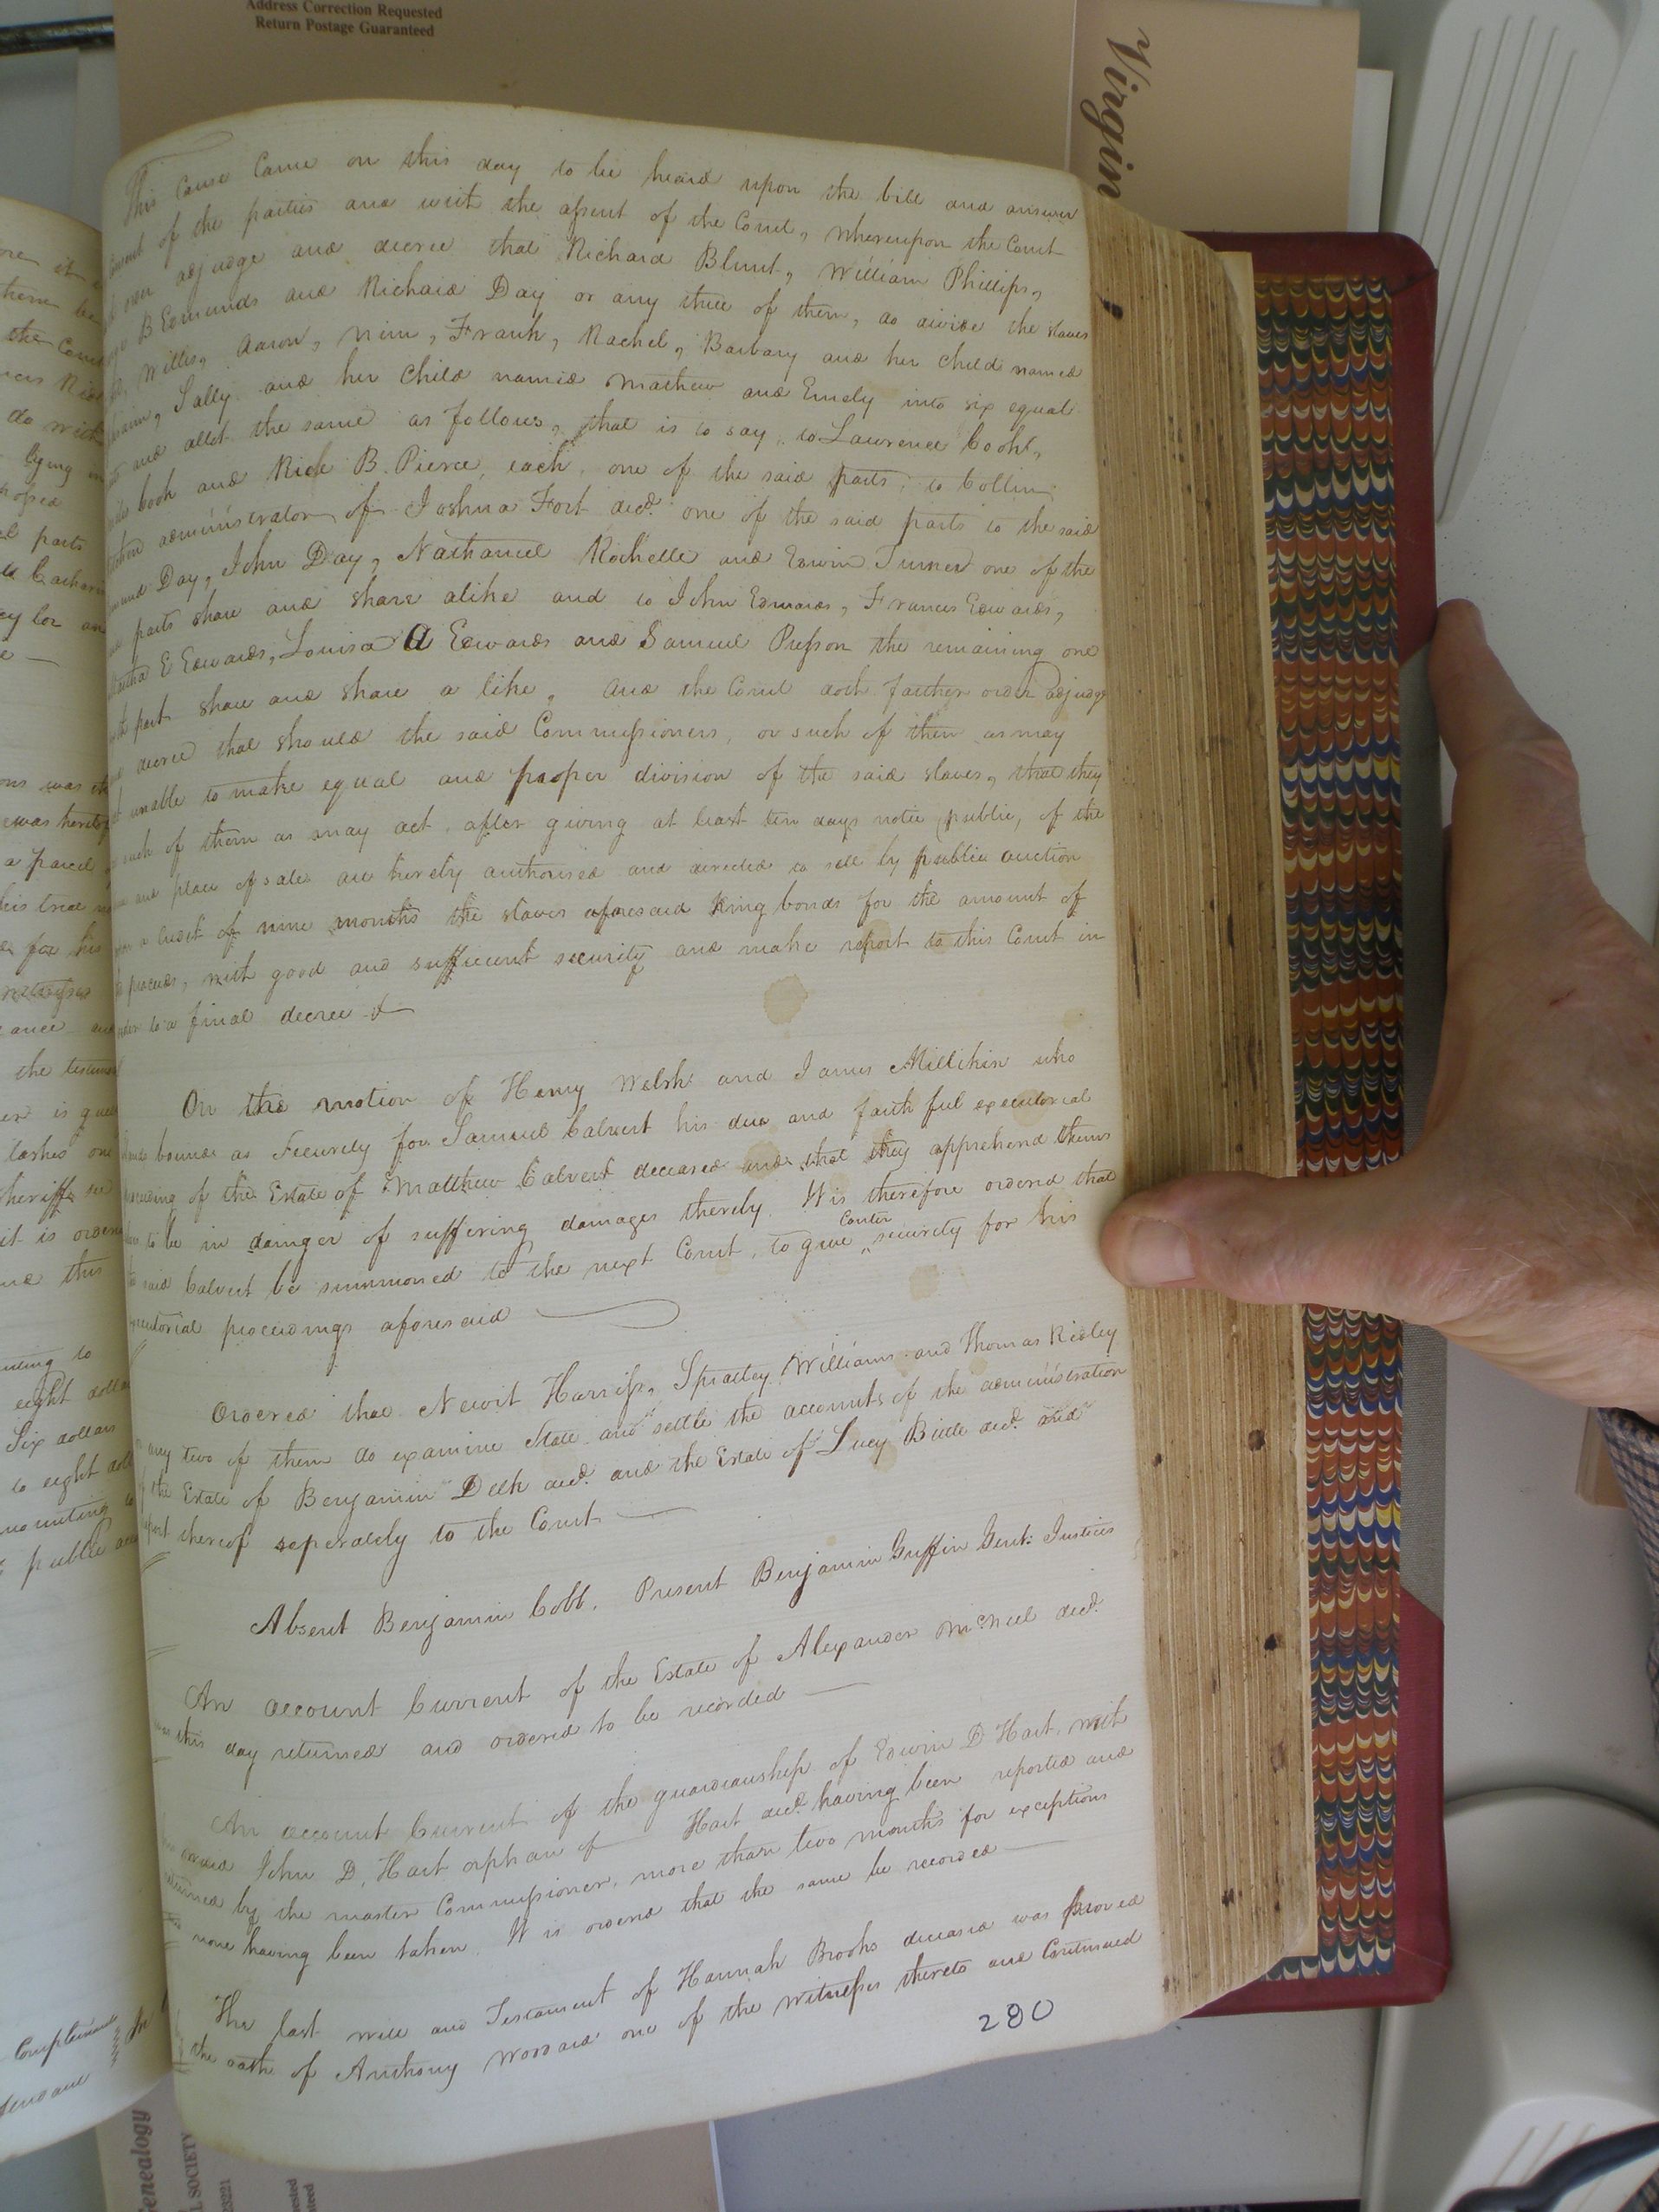 Address Correction Requested
Return Postage Guaranteed
Virgin
This Cause Came on this day to be heard upon the bill and answer
of the parties and with the assent of the Court, whereupon the Court
adjudge and decree that Richard Blunt, William Phillips,
B Edmunds and Richard Day or any three of them, do divide the slaves
Willis, Aaron, Nim, Frank, Rachel, Barbary and her child named
Sally and her Child named Mathew and Emely into six equal
and allot the same as follows, that is to say, to Lawrence Cook,
Cook and Rick B. Pierce, each, one of the said parts; to Collin
administrator of Joshua Fort decd. one of the said parts to the said
Day, John Day, Nathaniel Rochelle and Edwin Turner one of the
parts share and share alike and to John Edwards, Francis Edwards,
Martha E Edwards, Louisa A Edwards and Samuel Presson the remaining one
part share and share a like, And the Court doth farther order adjudge
decree that should the said Commissioners, or such of them as may
unable to make equal and proper division of the said slaves, that they
such of them as may act, after giving at least ten days notice (public) of the
and place of sale are hereby authorised and directed to sell by public auction
a credit of nine months the slaves aforesaid king bonds for the amount of
proceeds, with good and sufficient security and make report to this Court in
order to a final decree &
On the motion of Henry Welsh and James Millikin who
bound as Security for Samuel Calvert his due and faith ful executorial
proceeding of the Estate of Matthew Calvert deceased and that they apprehend thems
to be in dainger of suffering damages thereby. It is therefore ordered that
said Calvert be summoned to the next Court, to give Conter security for his
executorial proceedings aforesaid
Ordered that Newit Harriss, Spratley Williams and Thomas Ridley
or any two of them do examine State and settle the accounts of the administration
of the Estate of Benjamin Delk decd. and the Estate of Lucy Bittle decd. and
report thereof seperately to the Court
Absent Benjamin Cobb, Present Benjamin Griffin Gent: Justices
An account Current of the Estate of Alexander McNeel decd.
was this day returned and ordered to be recorded
An account Current of the guardianship of Edwin D Hart, with
John D. Hart orphan of Hart decd. having been reported and
returned by the master Commissioner, more than two months for exceptions
none having been taken. It is ordered that the same be recorded
The last will and Testament of Hannah Brooks deceased was proved
the oath of Anthony Womack one of the witnesses thereto and Continued
280
the
do with
lying in
parts
a parcel
for his
ance
lashes
sheriff
it is
this
eight dollars
Six dollars
to eight
public
Complainant
Genealogy
L SOCIETY
23221